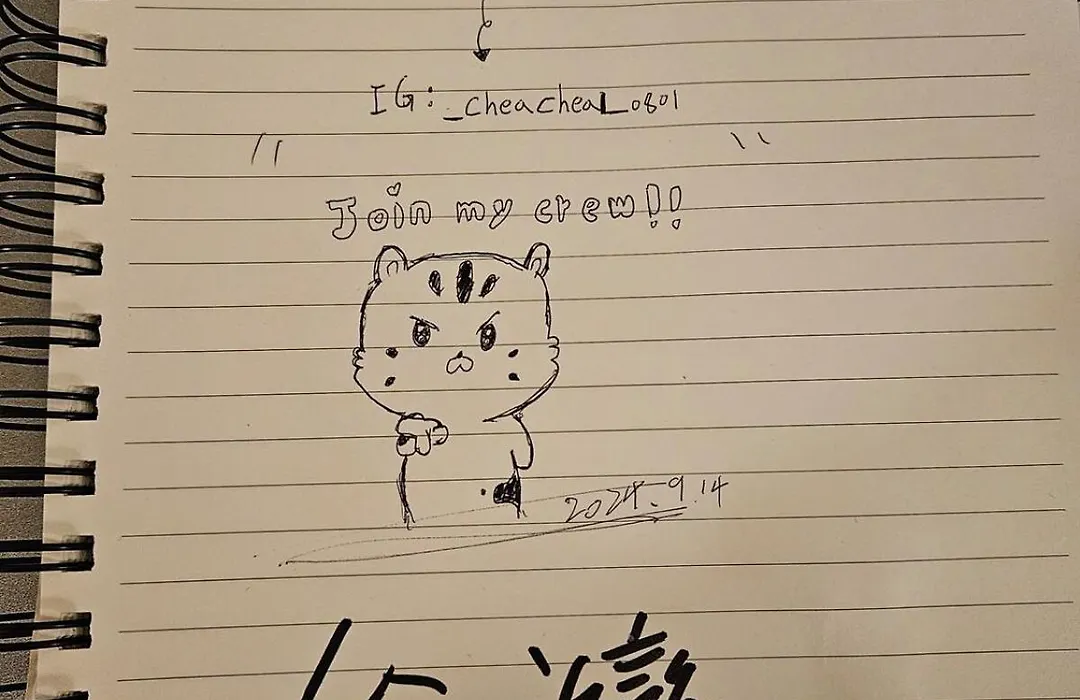 IG:_cheacheal_0801
Join my crew!!
2024.9.14